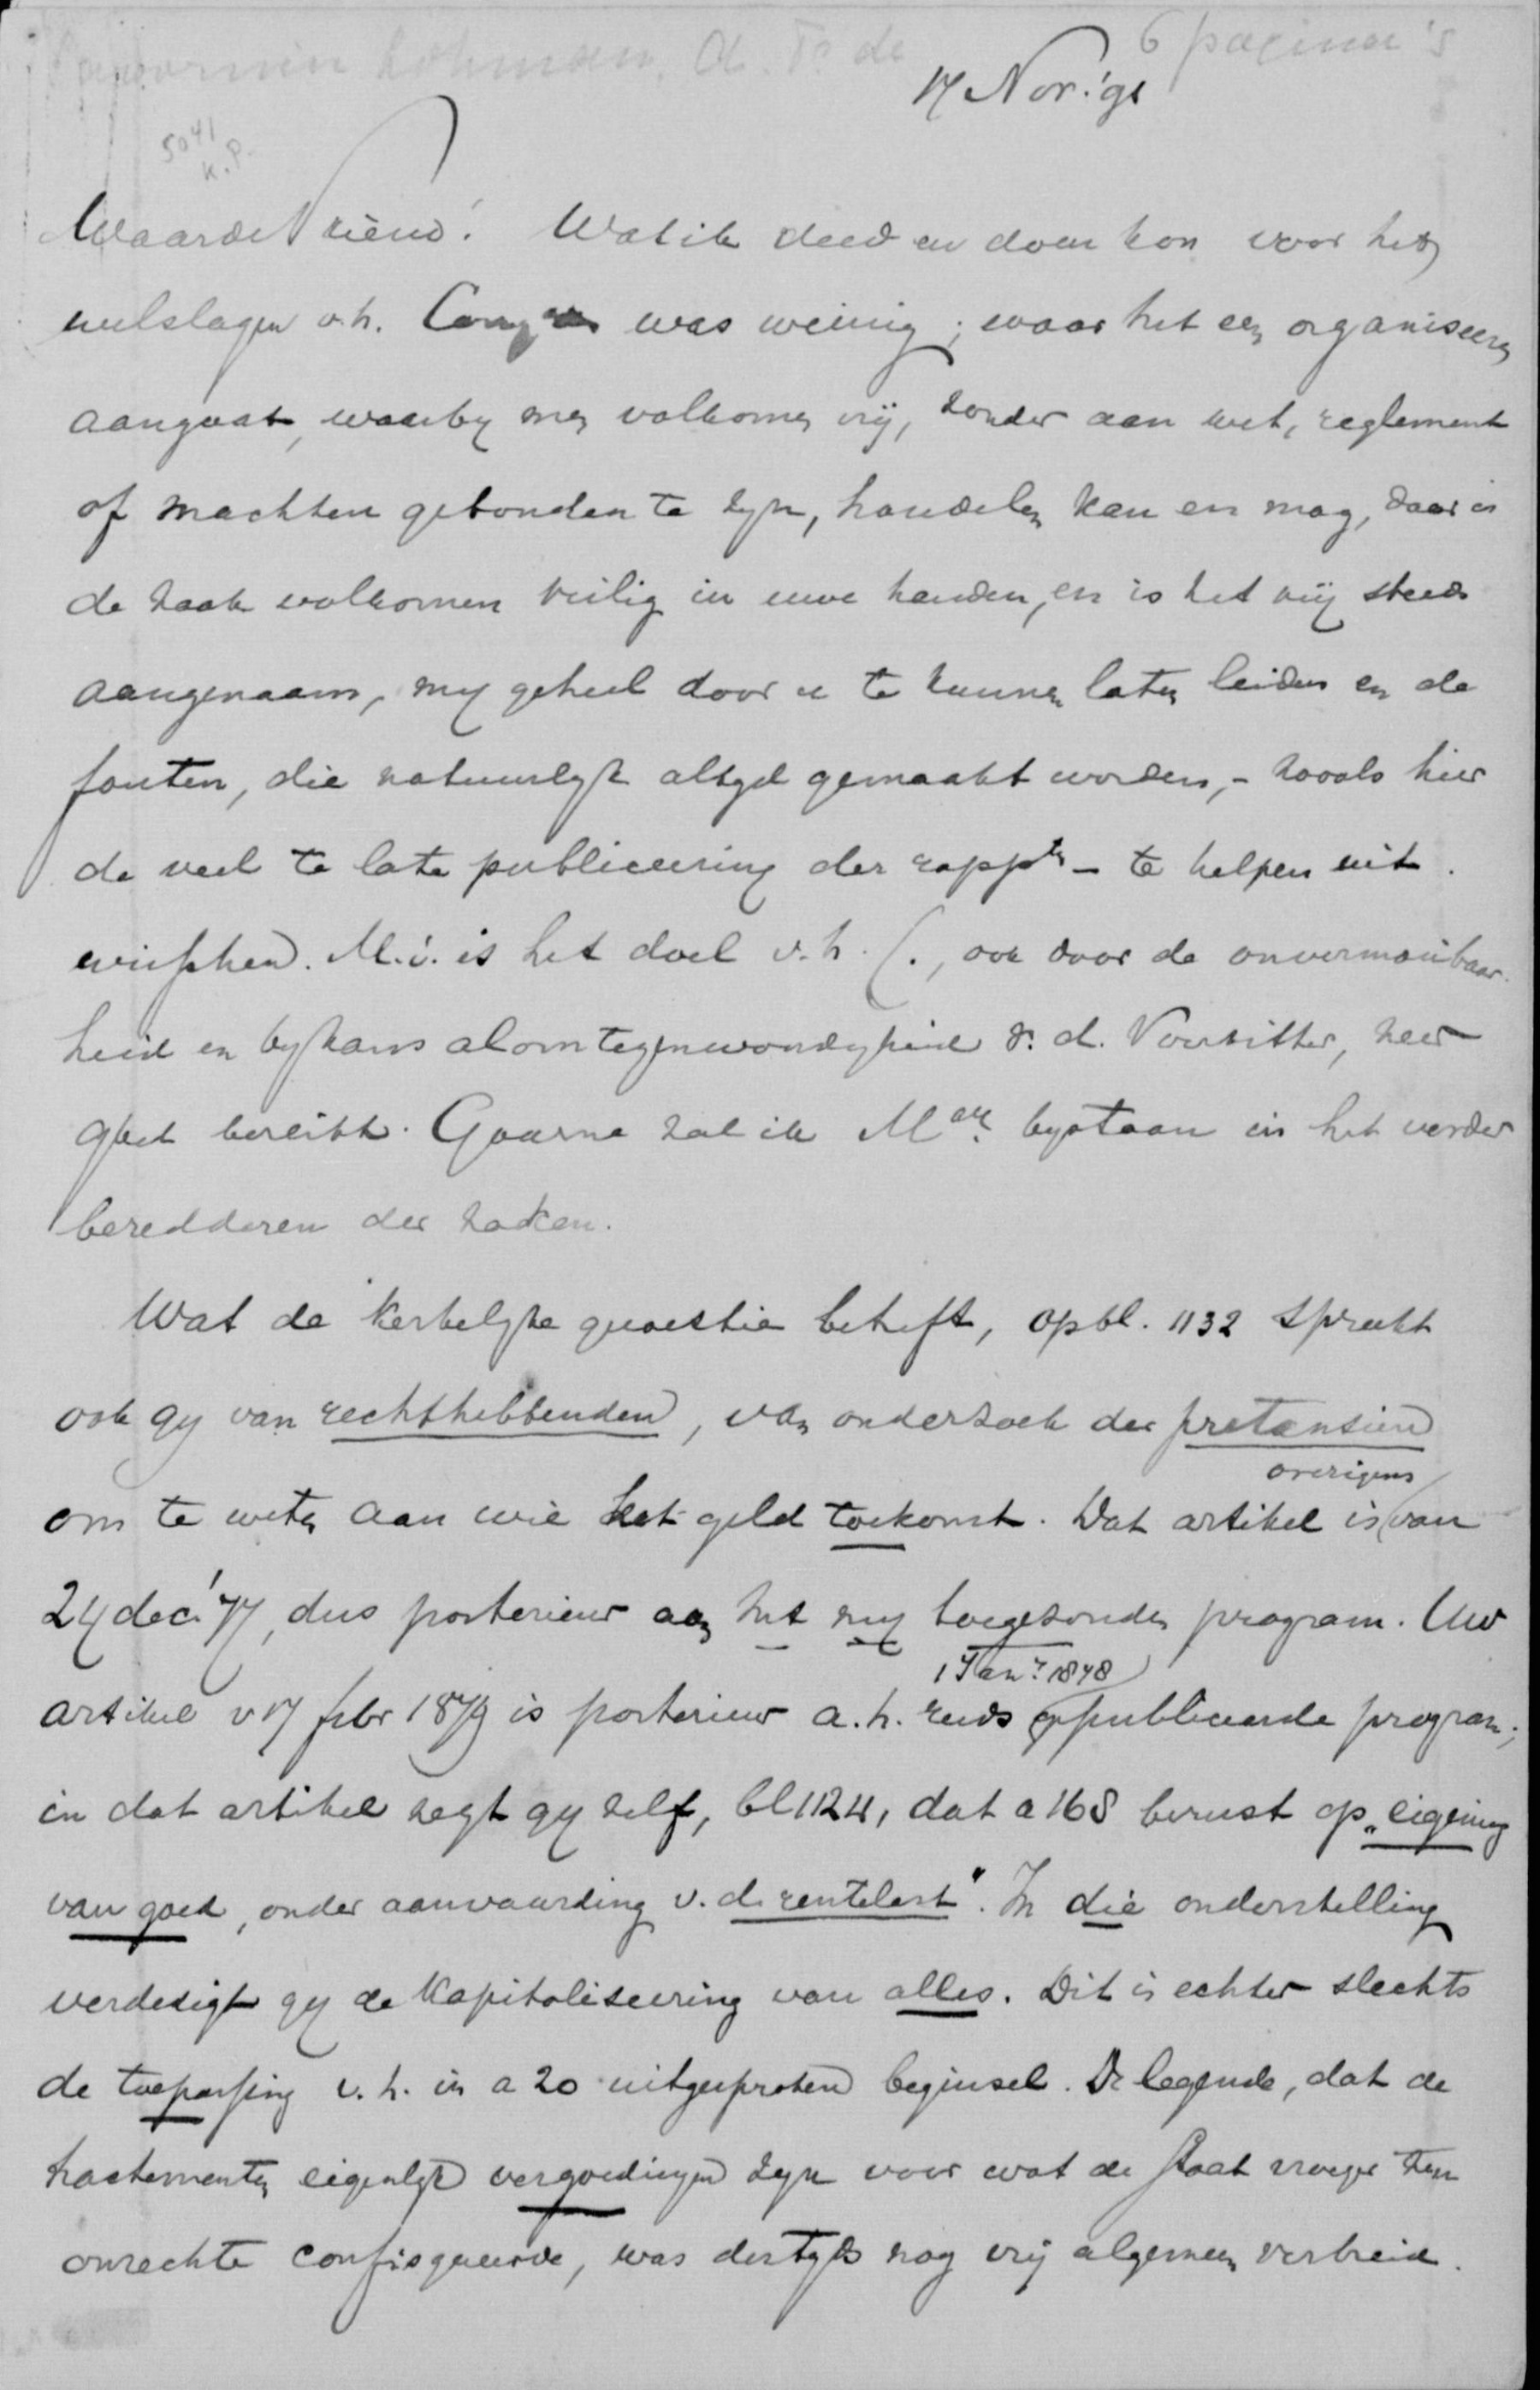 Savornin Lohman, A. F. de
6 pagina's
17 Nov. '91
5041
K.P.
Waarde Vriend! Wat ik deed en doen kon voor het
welslagen v.h. Congres was weinig; waar het een organiseeren
aangaat, waarby men volkomen vrij, zonder aan wet, reglement
of machten gebonden te zyn, handelen kan en mag, daar is
de zaak volkomen veilig in uwe handen, en is het mij steeds
aangenaam, my geheel door u te kunnen laten leiden en de
fouten, die natuurlyk altyd gemaakt worden, - zooals hier
de veel te late publiceering der rappten - te helpen uit
wisschen. M.i. is het doel v.h. C., ook door de onvermoeibaar-
heid en bykans alomtegenwoordigheid v. d. Voorzitter, zeer
goed bereikt. Gaarne zal ik bystaan in het verder
beredderen der zaken.
Wat de Kerkelyke quaestie betreft, op bl. 1132 spreekt
ook gy van rechthebbenden, van onderzoek der pretensien
om te weten aan wie het geld toekomt. Dat artikel is overigens van
24 dec. '77, dus posterieur aan het my toegezonden program. Uw
artikel v 17 febr 1879 is posterieur a. h. reeds 1 Janr. 1878 gepubliceerde program;
in dat artikel zegt gy zelf, bl 1124, dat a 168 berust op "eigening
van goed, onder aanvaarding v. d. rentelast". In die onderstelling
verdedigt gy de Kapitaliseering van alles. Dit is echter slechts
de toepassing v. h. in a 20 uitgesproken beginsel. De legende, dat de
tractementen eigenlyk vergoedingen zyn voor wat de Staat vroeger ten
onrechte confisqueerde, was destyds nog vrij algemeen verbreid.